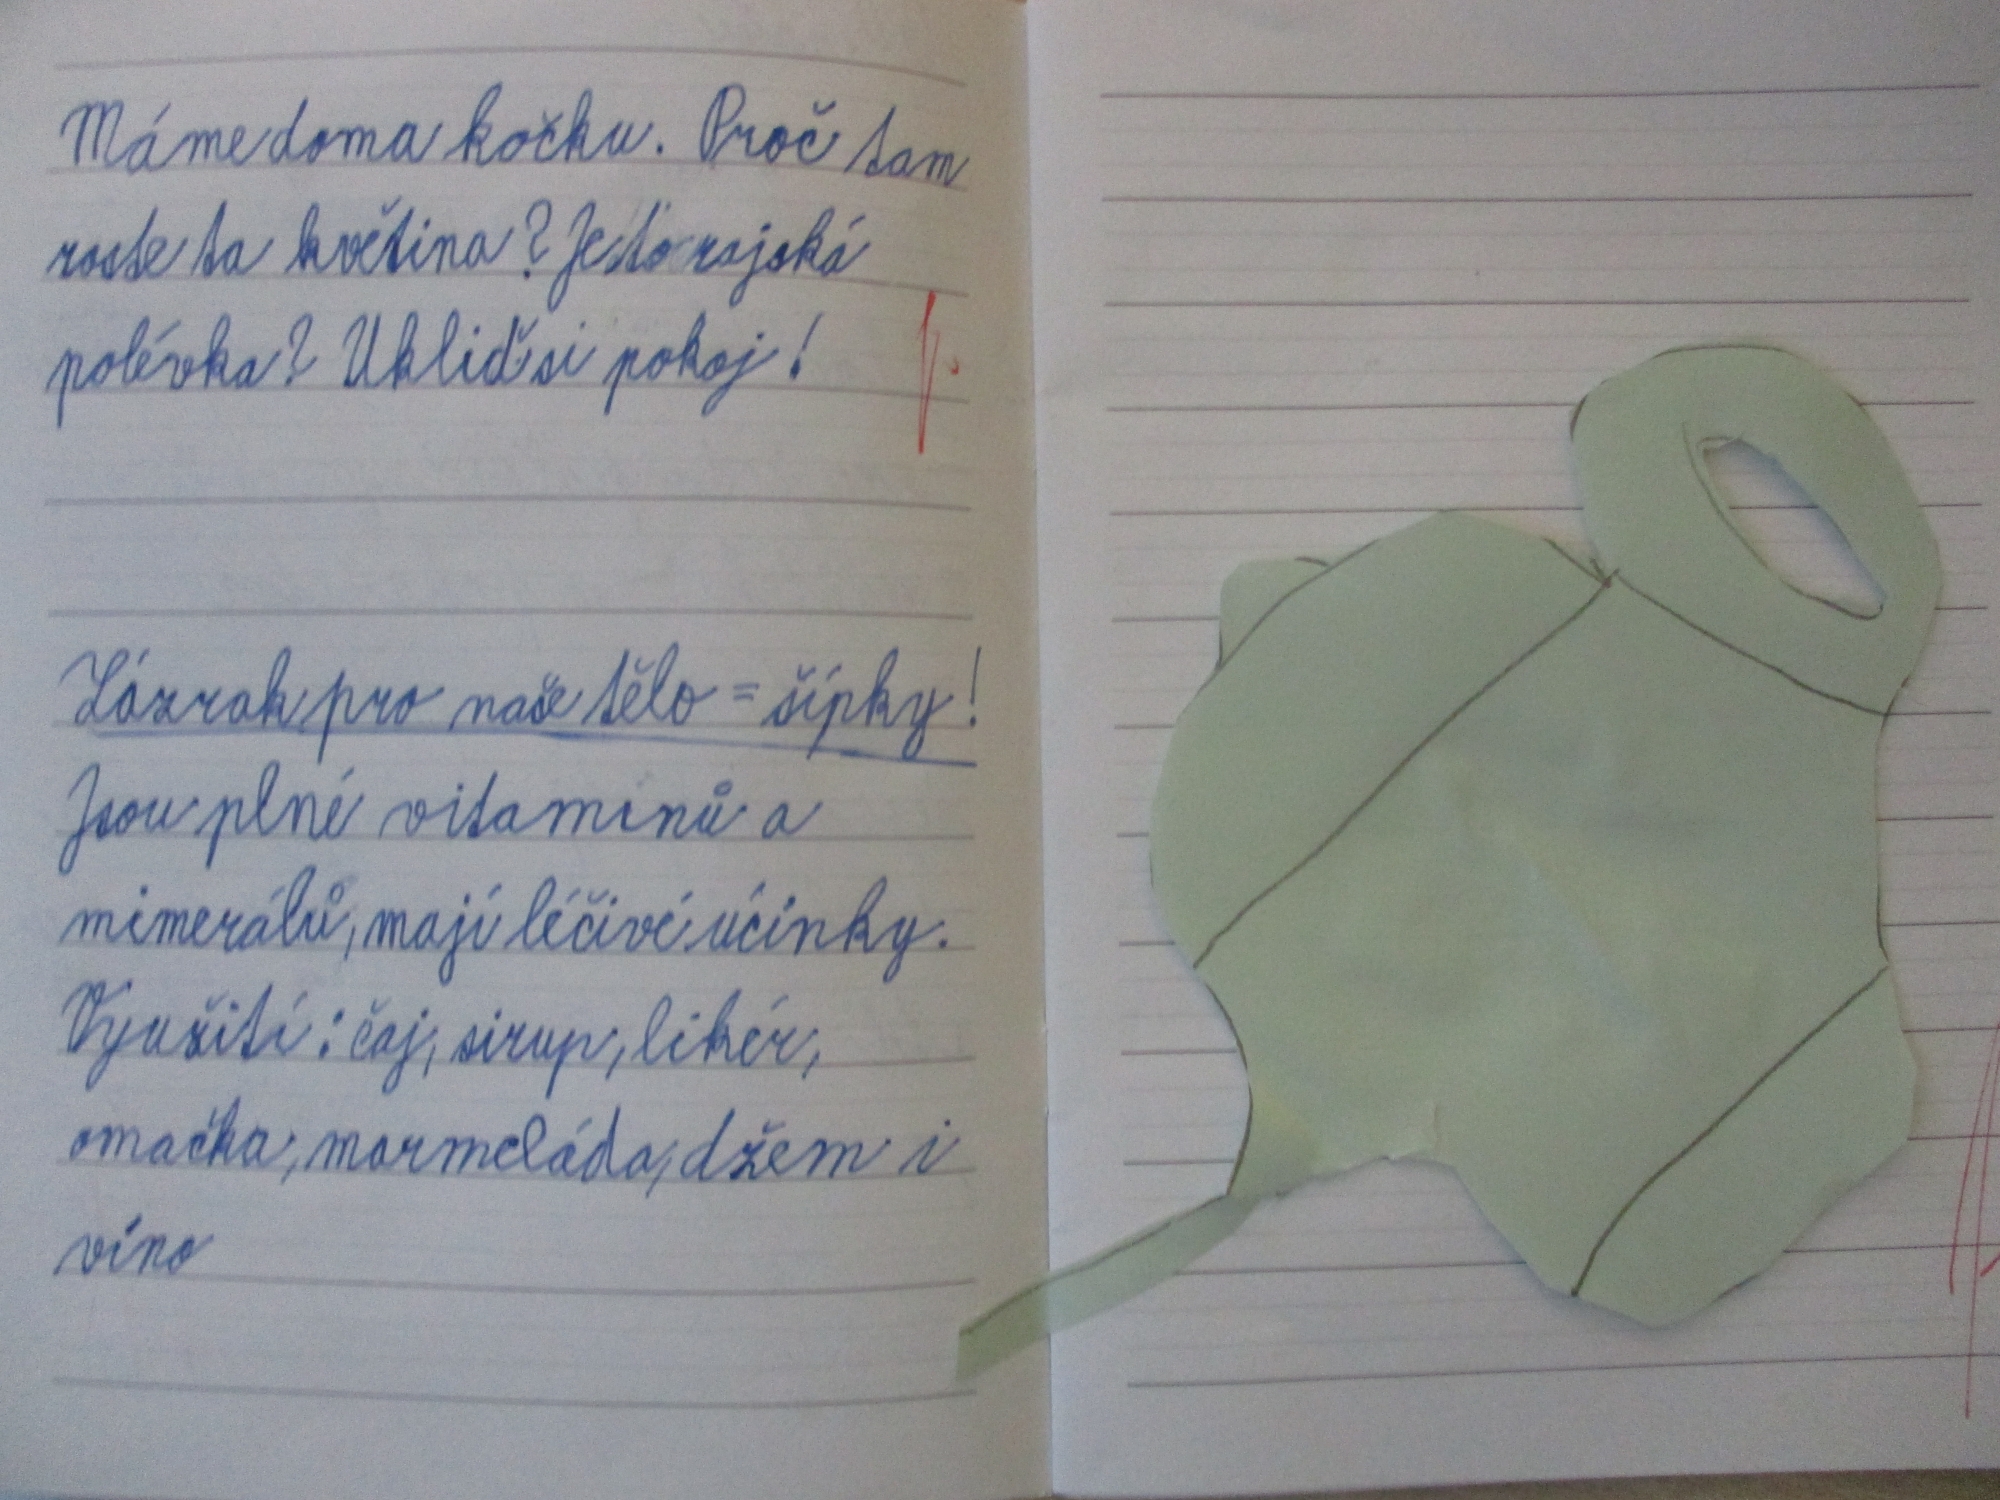 Máme doma kočku. Proč tam
roste ta květina? Je to rajská
polévka? Ukliď si pokoj!
Zázrak pro naše tělo = šípky!
Jsou plné vitamínů a
mimerálů, mají léčivé účinky.
Využití: čaj, sirup, likér,
omačka, marmeláda, džem i
víno